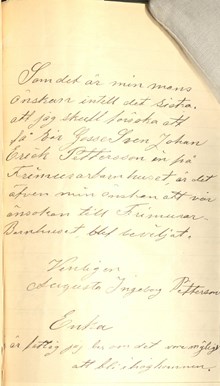 Som det är min mans
önskan intill det sista.
att jag skall försöka att
få vår Gosse Sven Johan
Erick Pettersson in på
Frimurarbarnhuset, är det
äfven min önskan att vår
ansökan till Frimurar-
Barnhuset blef beviljat.
Venligen
Augusta Ingeborg Petterson
Enka
är jag om det vore möjligt
att bli ihågkommen.